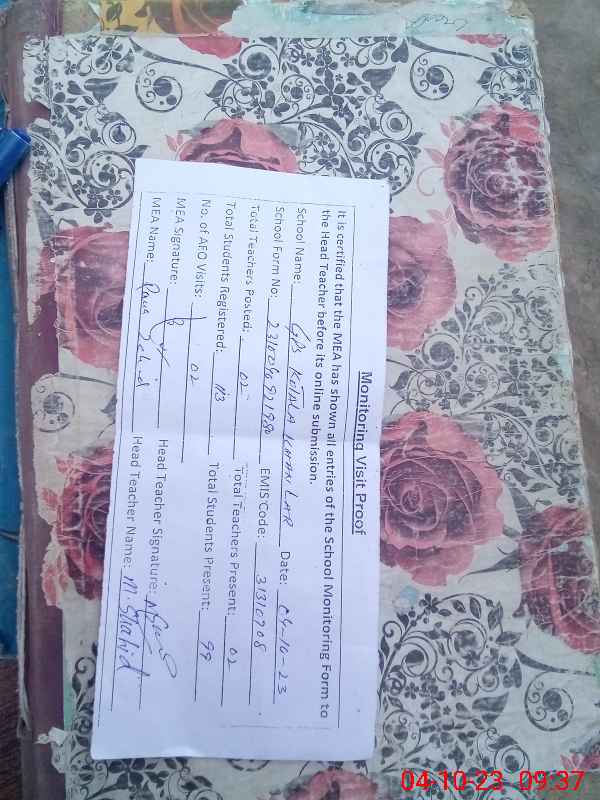 Monitoring Visit Proof
It is certified that the MEA has shown all entries of the School Monitoring Form to
the Head Teacher before its online submission.
School Name: GPS Date: 04-10-23
School Form No: EMIS Code: 31310708
Total Teachers Posted: 02 Total Teachers Present: 02
Total Students Registered: 113 Total Students Present: 99
No. of AEO Visits: 02
MEA Signature: Head Teacher Signature:
MEA Name: Rana Zahid Head Teacher Name: M. Shahid
04-10-23 09:37